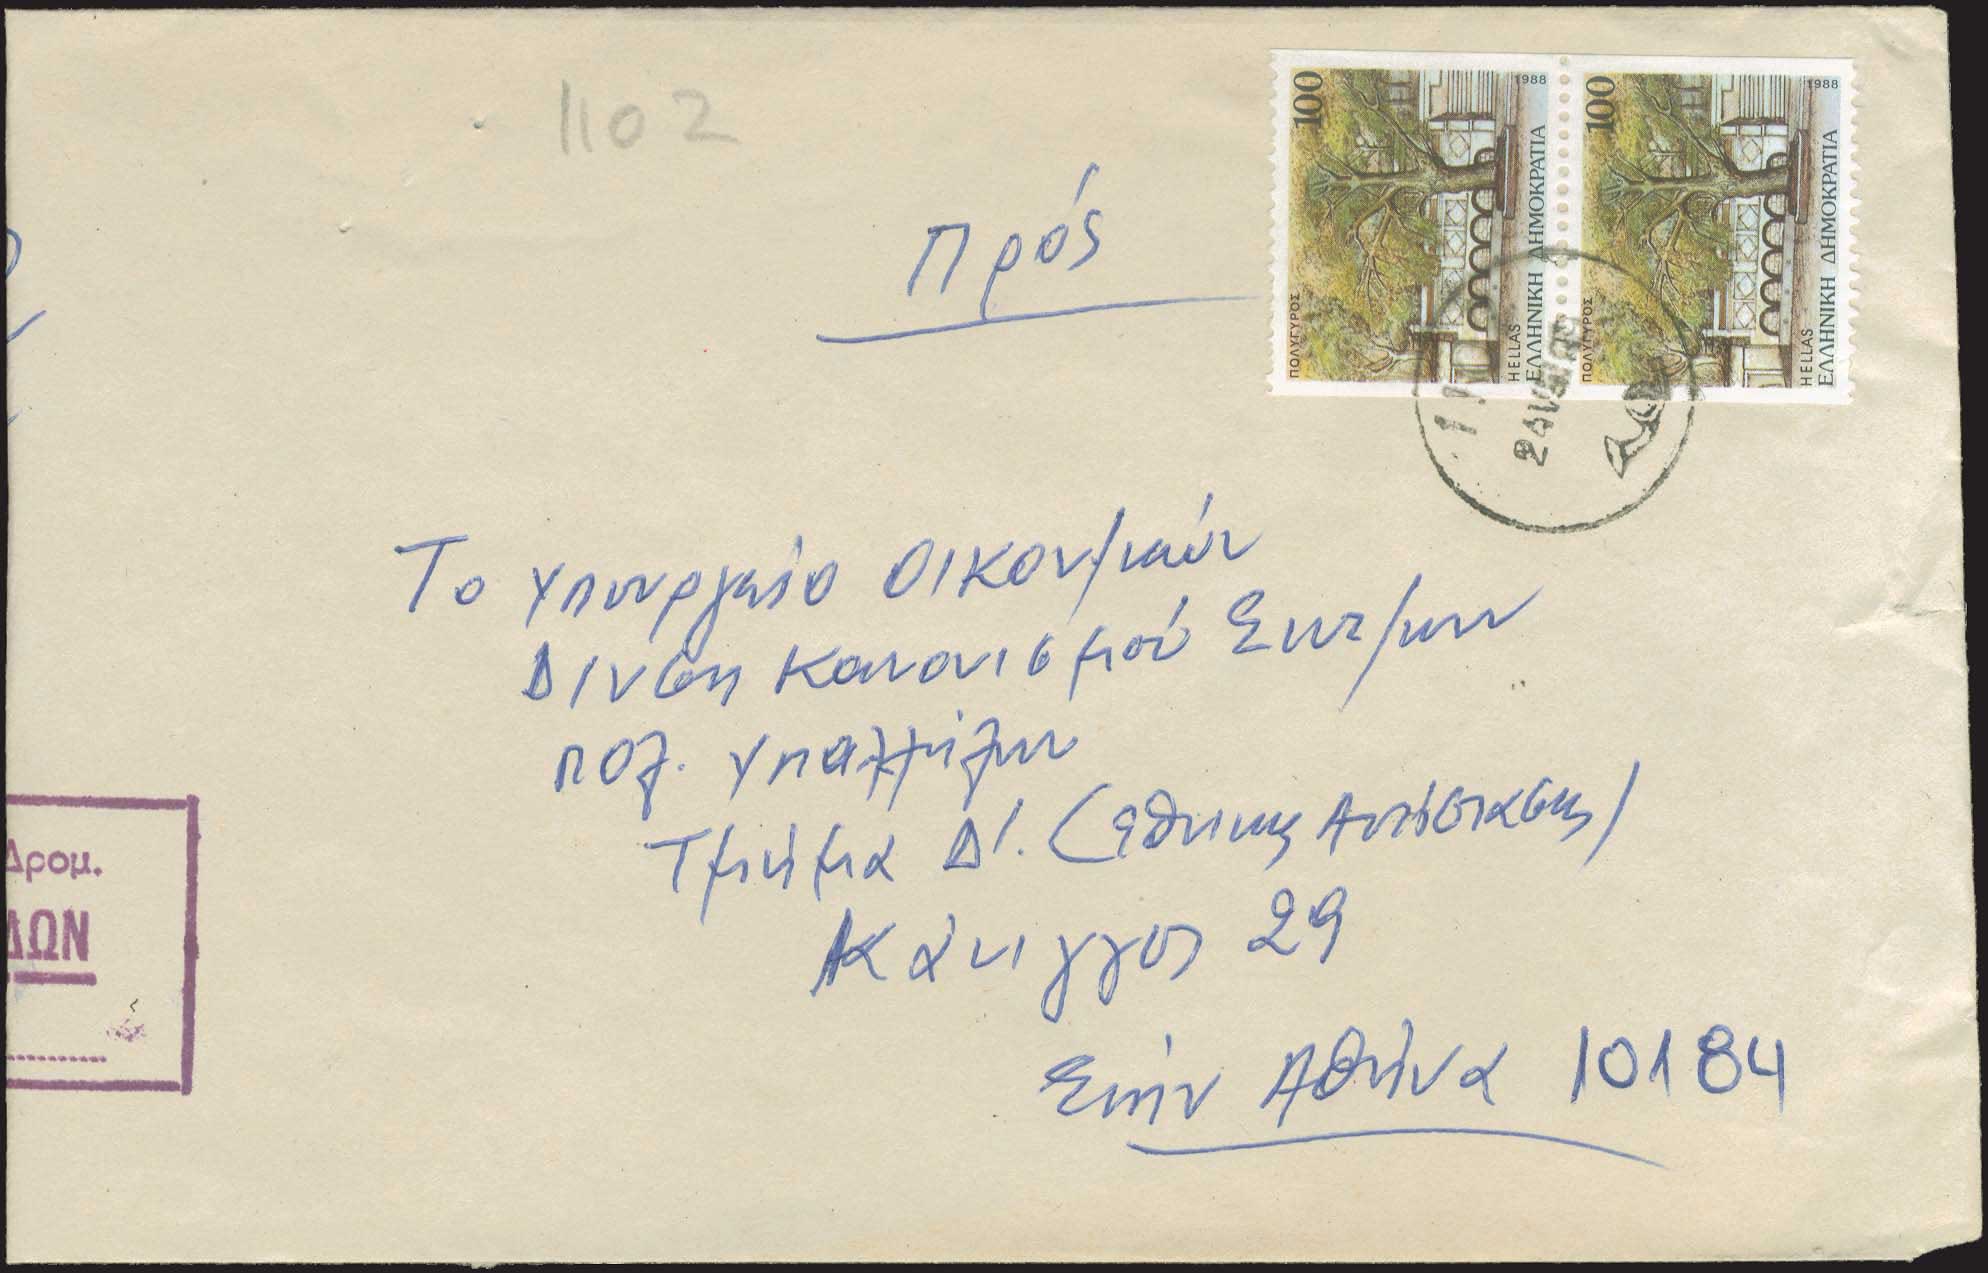 1102
Πρός
100
1988
ΠΟΛΥΓΥΡΟΣ
HELLAS
ΕΛΛΗΝΙΚΗ ΔΗΜΟΚΡΑΤΙΑ
100
1988
ΠΟΛΥΓΥΡΟΣ
HELLAS
ΕΛΛΗΝΙΚΗ ΔΗΜΟΚΡΑΤΙΑ
Το Υπουργείο Οικον/ικών
Δ/νση Κανονισμού Συντ/εων
πολ. Υπαλλήλων
Τμήμα Δ'. (Εθνικης Αντίστασης)
Κάνιγγος 29
Στήν Αθήνα 10184
Δρομ.
ΔΩΝ